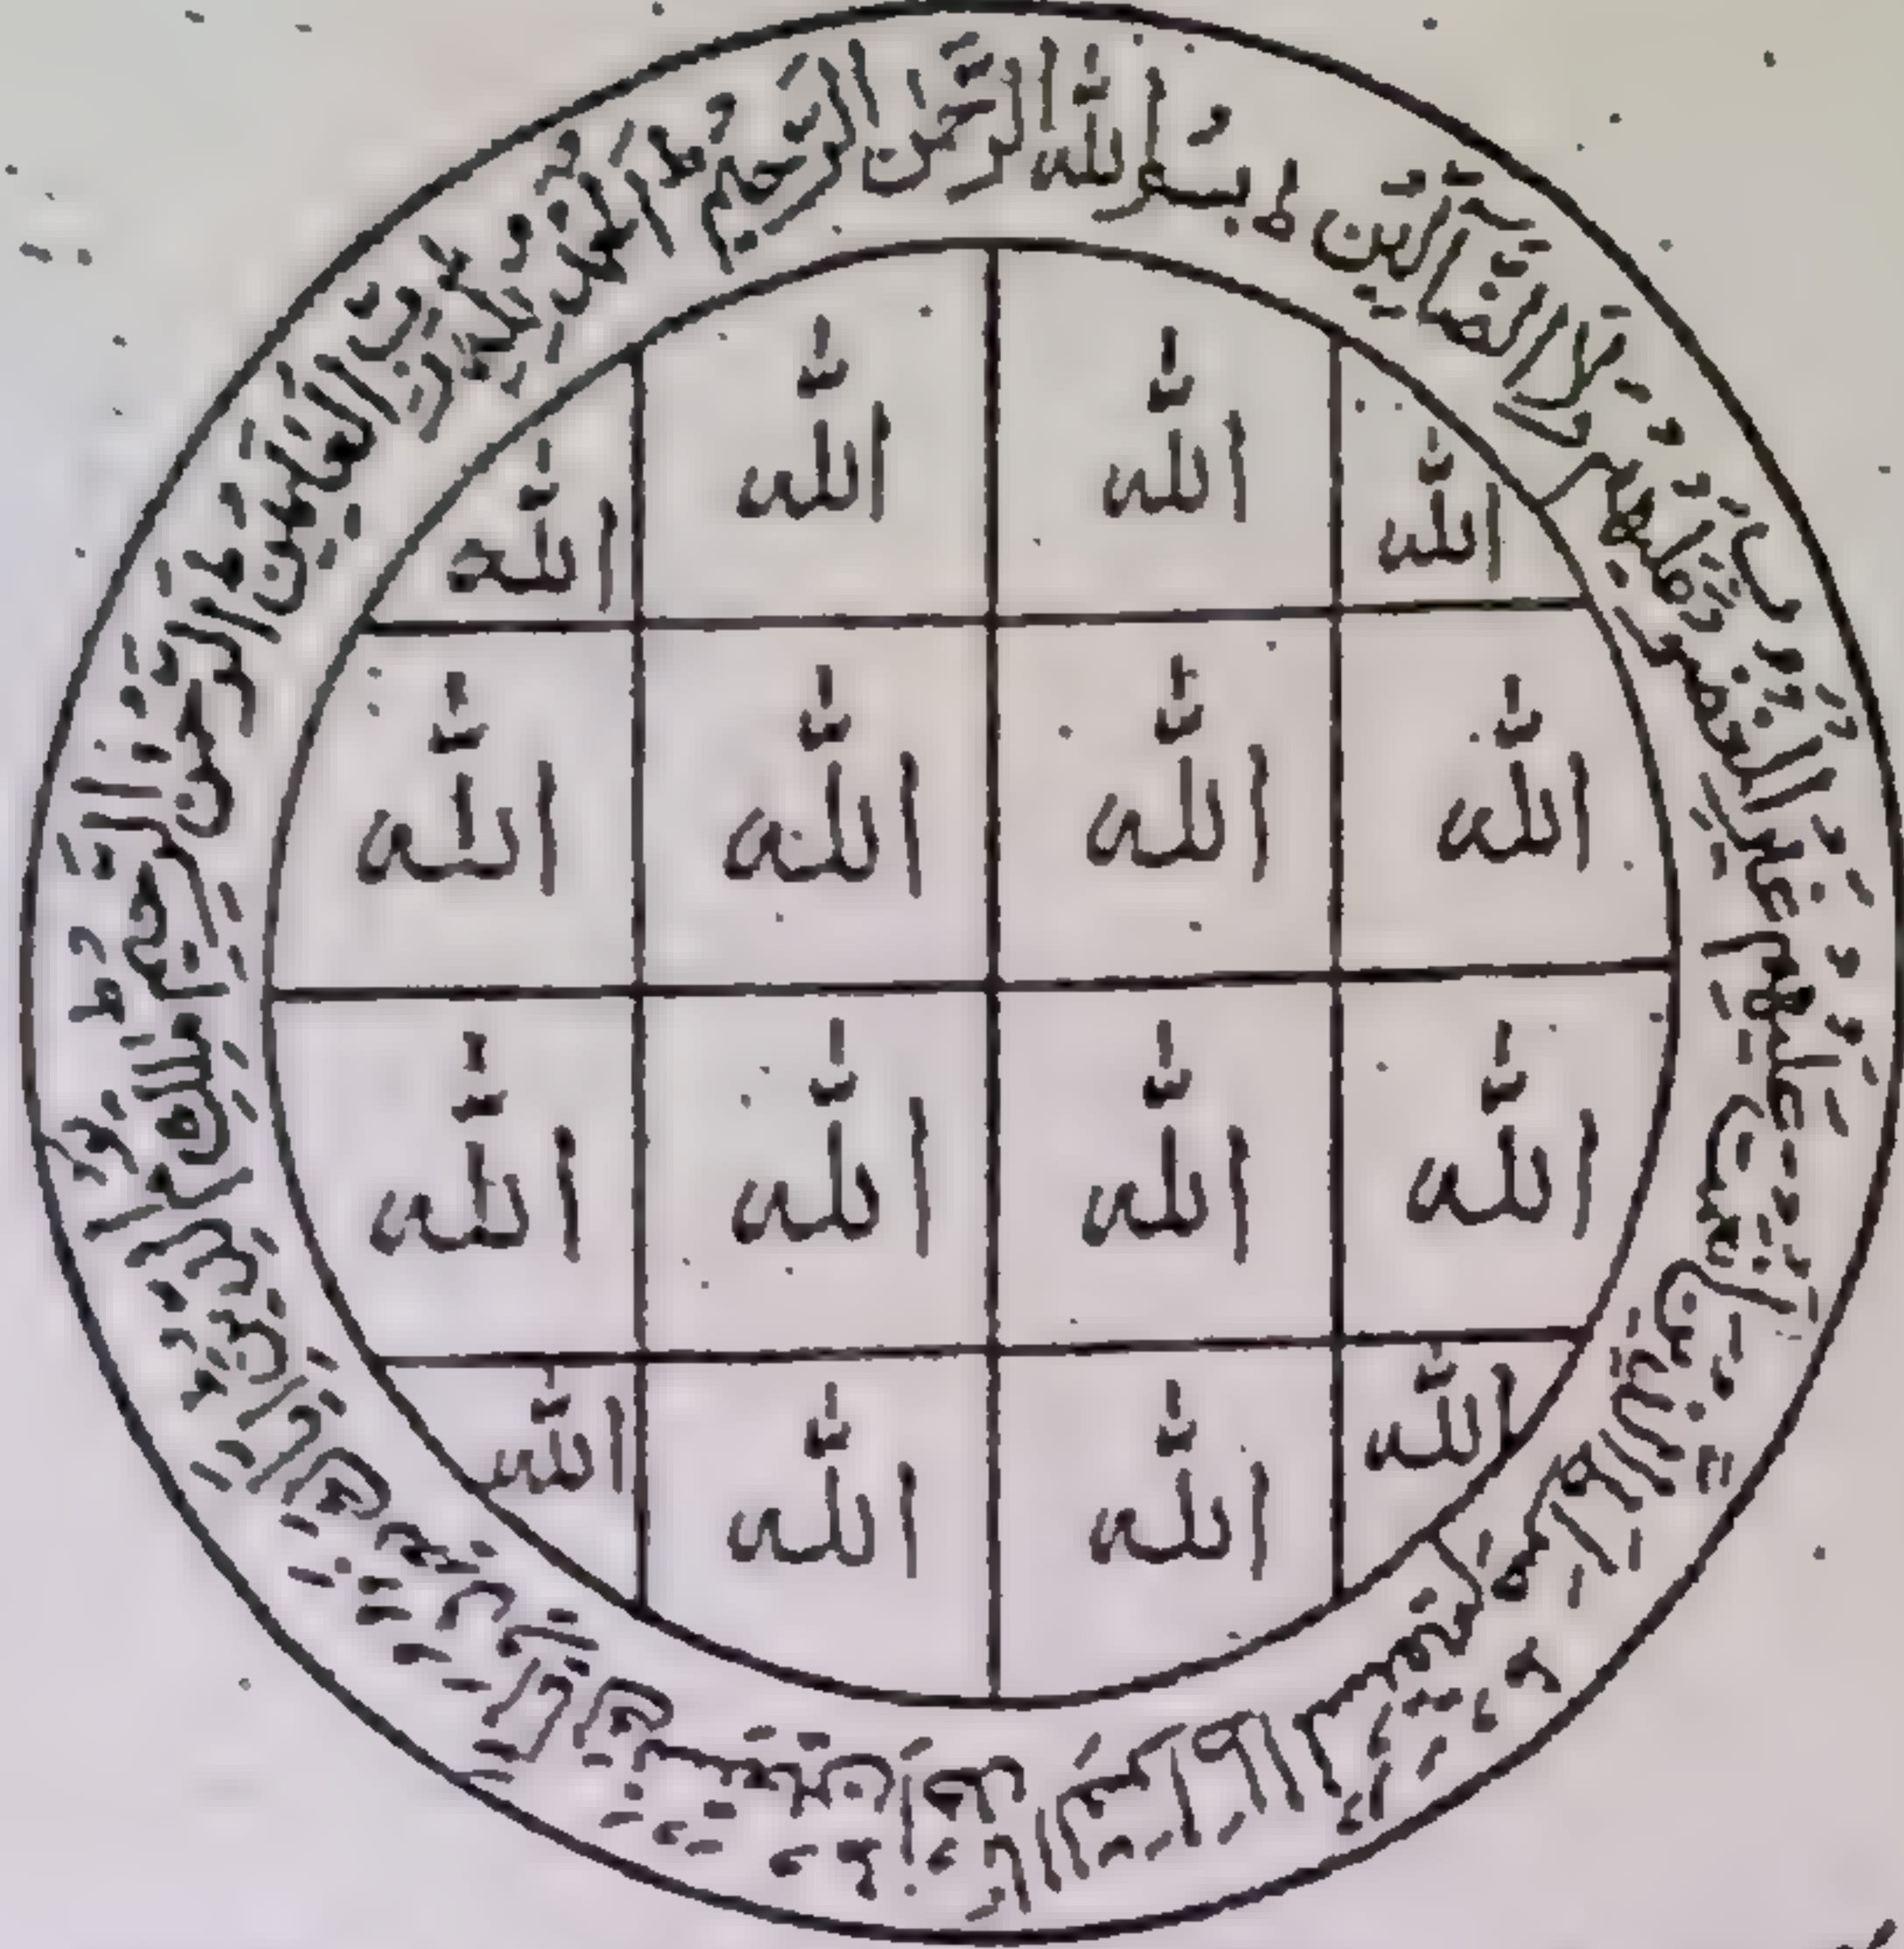 بِسْمِ اللّٰهِ الرَّحْمٰنِ الرَّحِيْمِ ط اَلْحَمْدُ لِلّٰهِ رَبِّ الْعٰلَمِيْنَ ط الرَّحْمٰنِ الرَّحِيْمِ ط مٰلِكِ يَوْمِ الدِّيْنِ اِيَّاكَ نَعْبُدُ وَاِيَّاكَ نَسْتَعِيْنُ اِهْدِنَا الصِّرَاطَ الْمُسْتَقِيْمَ صِرَاطَ الَّذِيْنَ اَنْعَمْتَ عَلَيْهِمْ غَيْرِ الْمَغْضُوْبِ عَلَيْهِمْ وَلَا الضَّآلِّيْنَ ط
اللّٰه اللّٰه اللّٰه اللّٰه
اللّٰه اللّٰه اللّٰه اللّٰه
اللّٰه اللّٰه اللّٰه اللّٰه
اللّٰه اللّٰه اللّٰه اللّٰه